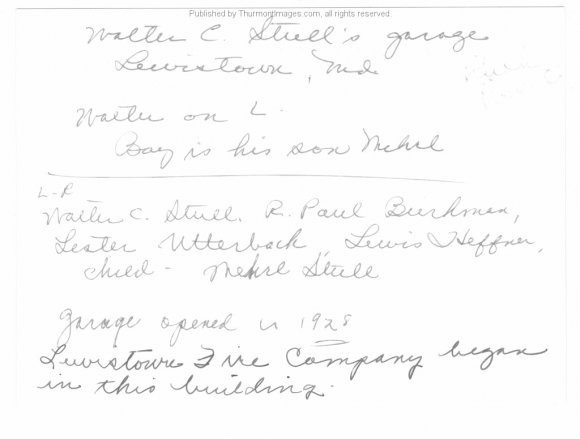 Published by ThurmontImages.com, all rights reserved.
Walter C. Stull's garage
Lewistown, Md.
Walter on L.
Boy is his son Mehrl
L-R
Walter C. Stull, R. Paul Buhrman,
Lester Utterback, Lewis Heffner,
child - Mehrl Stull
Garage opened in 1928
Lewistown Fire Company began
in this building.